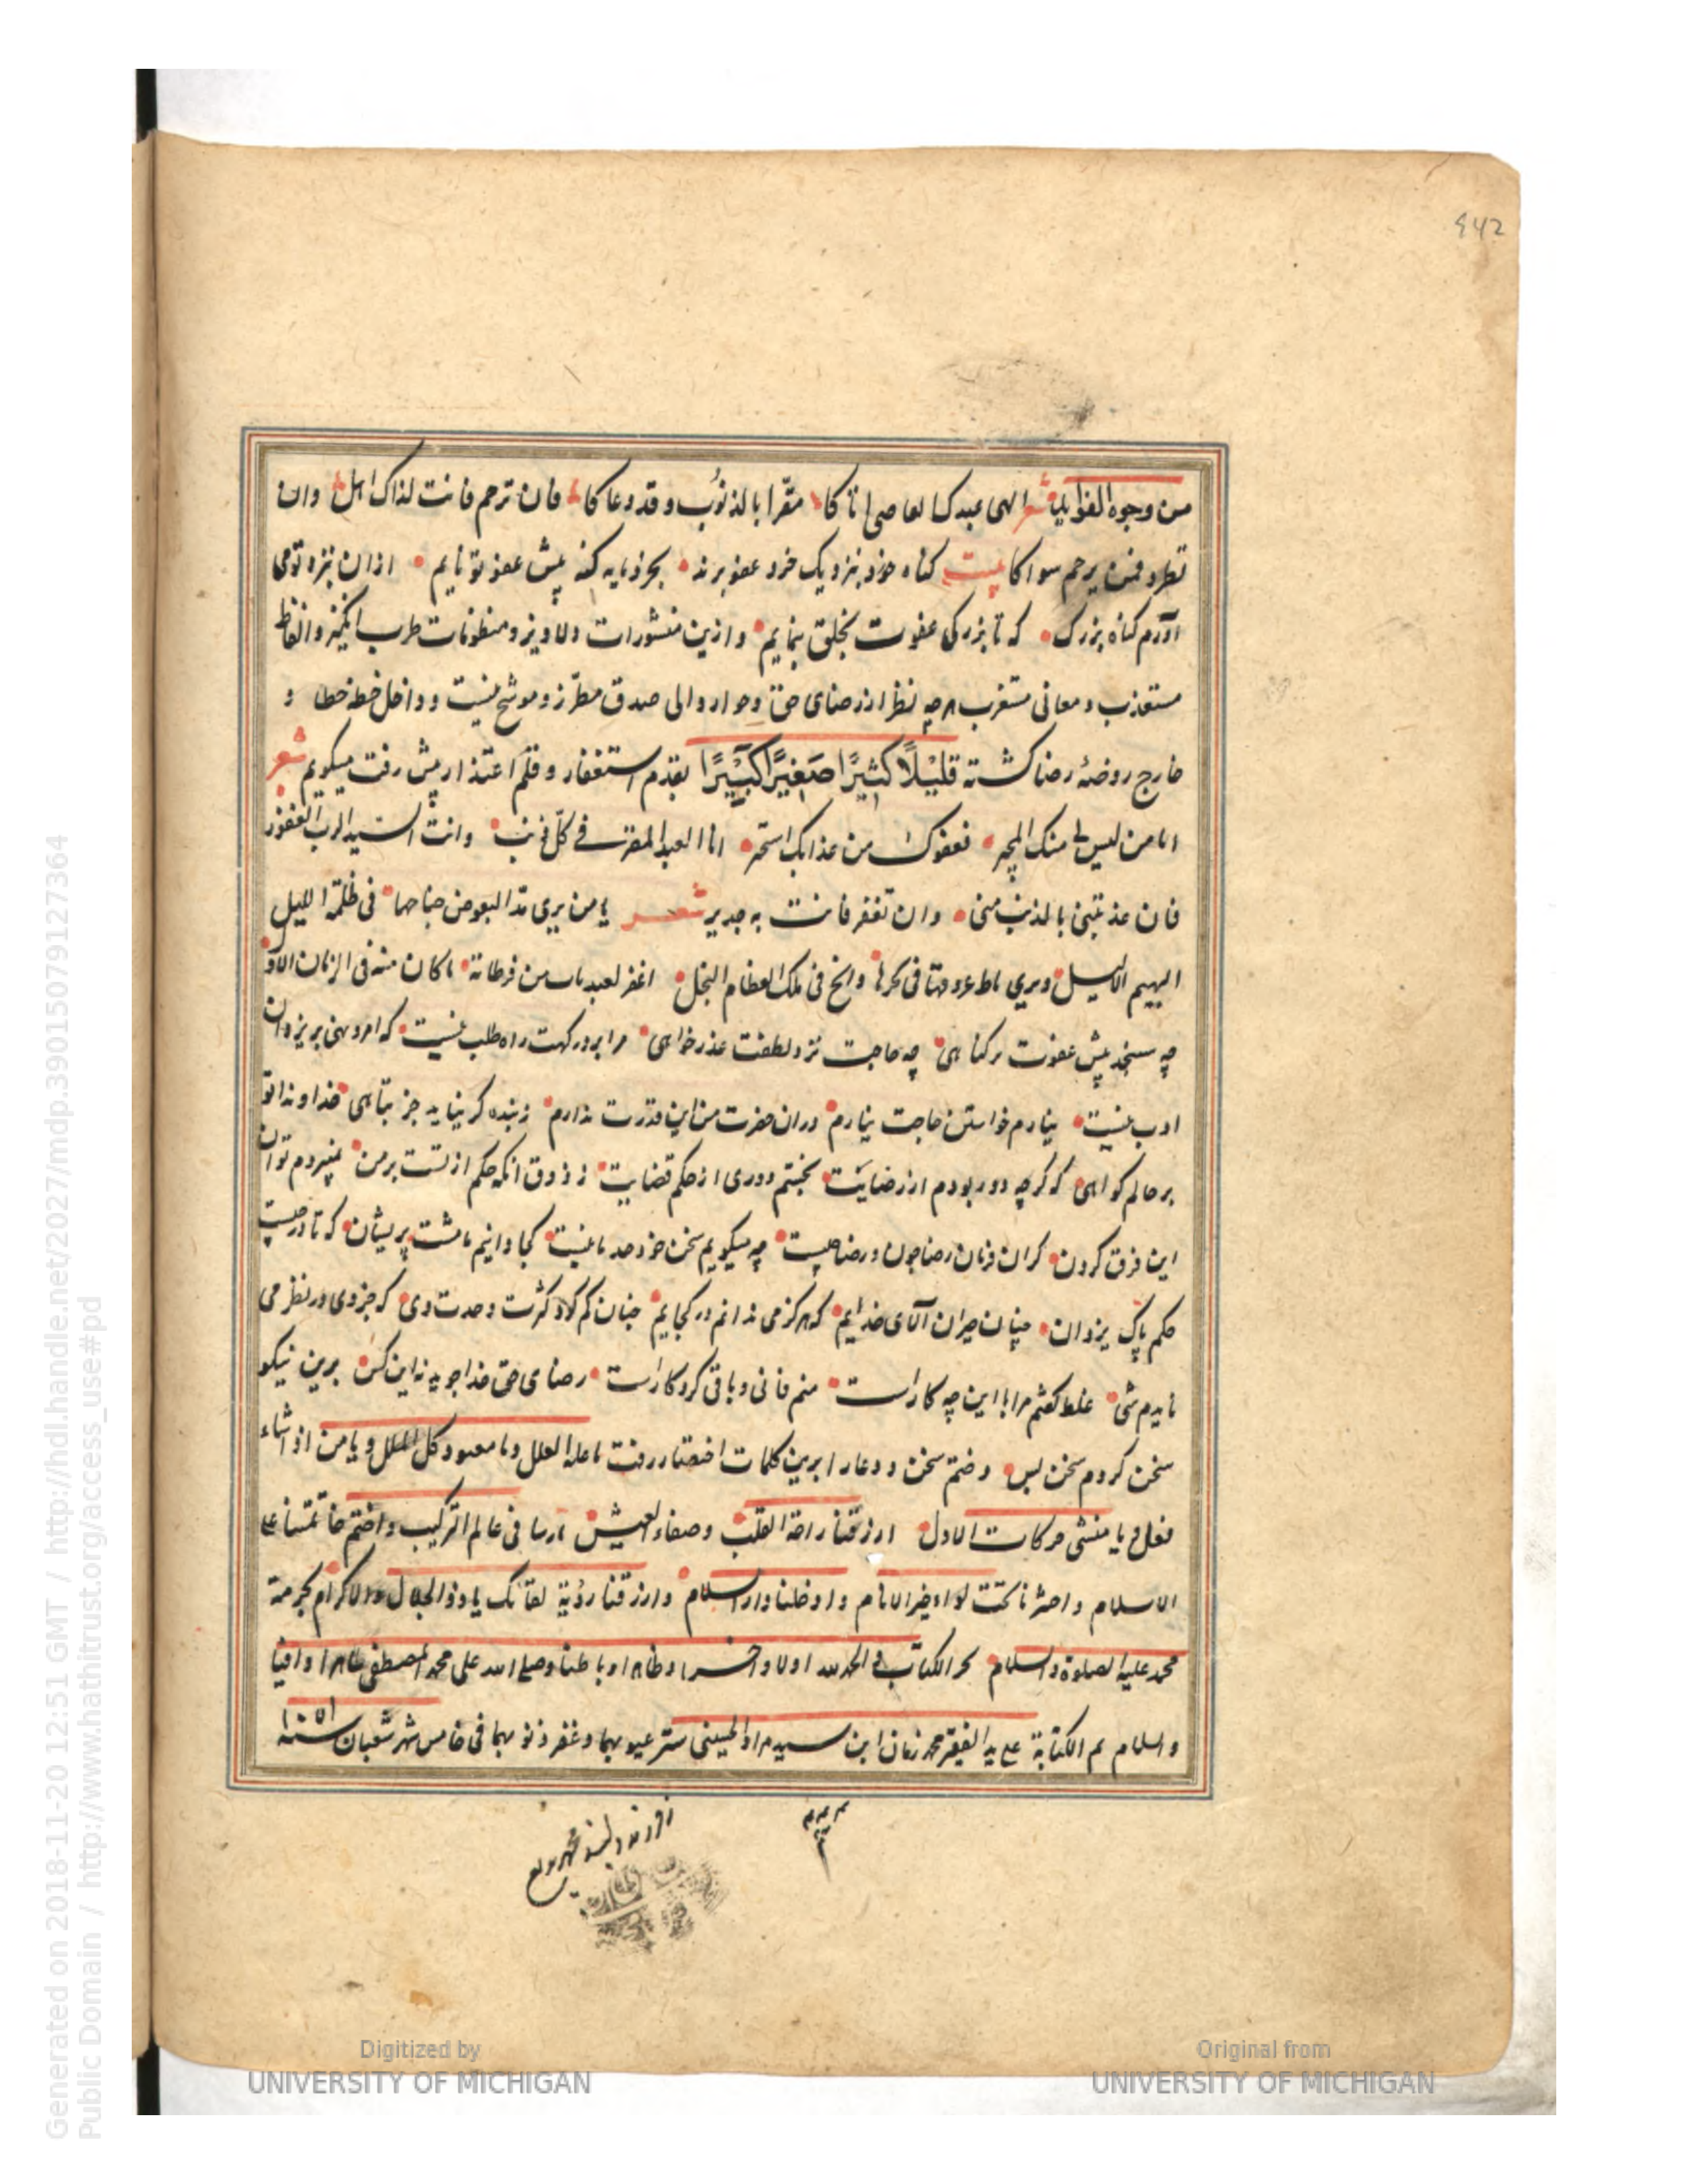 642
من وجوه الفوایلیا شعر الهی عبدک العاصی اتاکا مقرا بالذنوب وقد دعاکا فان ترحم فانت لذاک اهل وان
تطرد فمن یرحم سواکا بیت کناه خود بنزدیک خرد عفو برند بجرذمایه کنه پیش عفو تو نایم ازان بنزد تو می
آورم کناه بزرک که تا بزرکی عفوت بخلق بنمایم وازین منشورات دلاویز و منظومات طرب انکیز والفاظ
مستعذب و معانی مستغرب هرچه نظر از رضای حق وحوار والی صدق مطرز و موشح نیست و داخل خطهٔ خطا و
خارج روضهٔ رضا کشته قلیلًا کثیرًا صغیرًا کبیرًا بقدم استغفار و قلم اعتذار پیش رفت میکویم شعر
انا من لیس لی منک المجیر فعفوک من عذابک استجیر انا العبد المقر فی کل ذنب وانت السید الرب الغفور
فان عذبتنی بالذنب منی وان تغفر فانت به جدیر شعر یا من یری مد البعوض جناحها فی ظلمة اللیل
البهیم الالیل ویری مناط عروقها فی نحرها والمخ فی تلک العظام النحل اغفر لعبد تاب من فرطاته ما کان منه فی الزمان الاول
چه سنجد پیش عفوت هر کناهی چه حاجت نزد لطفت عذر خواهی مرا بر درکهت راه طلب نیست که امر و نهی بر یزدان
ادب نیست نیارم خواستن حاجت نیارم دران حضرت من این قدرت ندارم ز بنده کر نیاید جز تباهی خداوندا تو
بر حالم کواهی که کرچه دور بودم از رضایت نجستم دوری از حکم قضایت ز ذوق آنکه حکم از تست بر من نمیدم توان
این فرق کردن کزان فرمان رضا جون و رضا چیست چه میکویم سخن خود حد ما نیست کجا دانیم ما مشت پریشان که تا در چیست
حکم پاک یزدان چنان حیران آلای خدایم که هرکز می ندانم در کجایم چنان کم کرد کثرت وحدت وی که جز وی در نظر می
نایدم شی غلط کفتم مرا با این چه کار است منم فانی و باقی کردکار است رضای حق خدا جوید نه این کس برین نیکو
سخن کردم سخن بس و ختم سخن و دعا را برین کلمات اختصار رفت یا علة العلل و یا معبود کل الملل و یا من اذا شاء
فعل و یا منشی حرکات الاول ارزقنا راحة القلب وصفاء العیش مادمنا فی عالم الترکیب واختم خاتمتنا علی
الاسلام واحشرنا تحت لواء خیر الانام وادخلنا دار السلام وارزقنا رؤیة لقائک یا ذو الجلال والاکرام بحرمة
محمد علیه الصلوة والسلام تحر الکتاب والحمد لله اولا وآخرا وظاهرا وباطنا وصلی الله علی محمد المصطفی طاهرا وافیا
والسلام تم الکتابة علی ید الفقیر محمد زمان ابن سید مراد الحسینی ستر عیوبهما وغفر ذنوبهما فی خامس شهر شعبان سنة ١٠٥١
Digitized by
UNIVERSITY OF MICHIGAN
Original from
UNIVERSITY OF MICHIGAN
Generated on 2018-11-20 12:51 GMT / http://hdl.handle.net/2027/mdp.39015079127364
Public Domain / http://www.hathitrust.org/access_use#pd